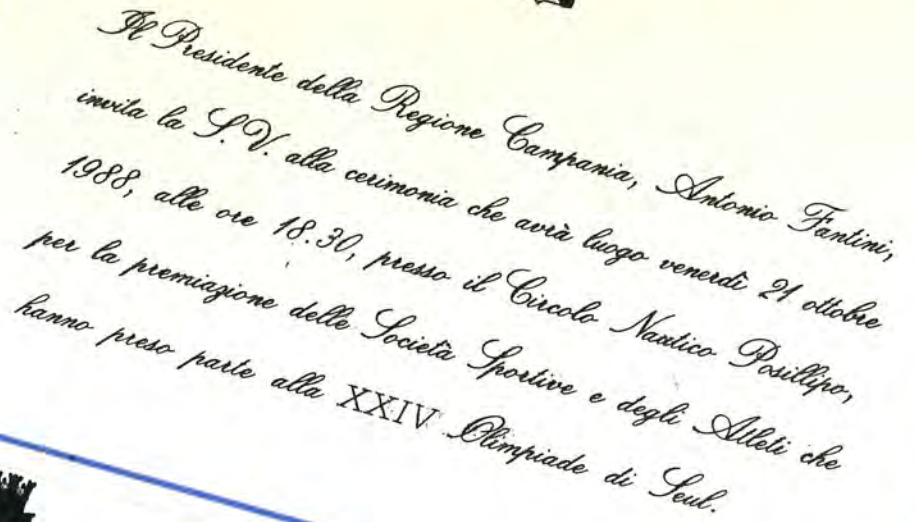 Il Presidente della Regione Campania, Antonio Fantini,
invita la S.V. alla cerimonia che avrà luogo venerdì 21 ottobre
1988, alle ore 18.30, presso il Circolo Nautico Posillipo,
per la premiazione delle Società Sportive e degli Atleti che
hanno preso parte alla XXIV Olimpiade di Seul.